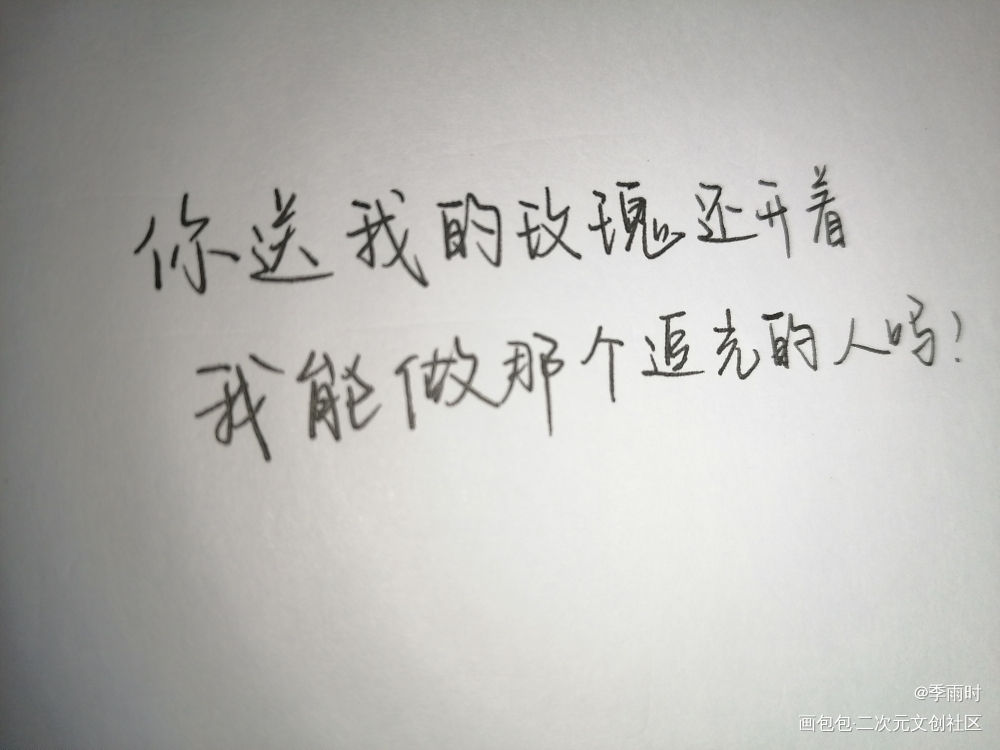 你送我的玫瑰还开着
我能做那个追光的人吗?
@季雨时
画包包·二次元文创社区